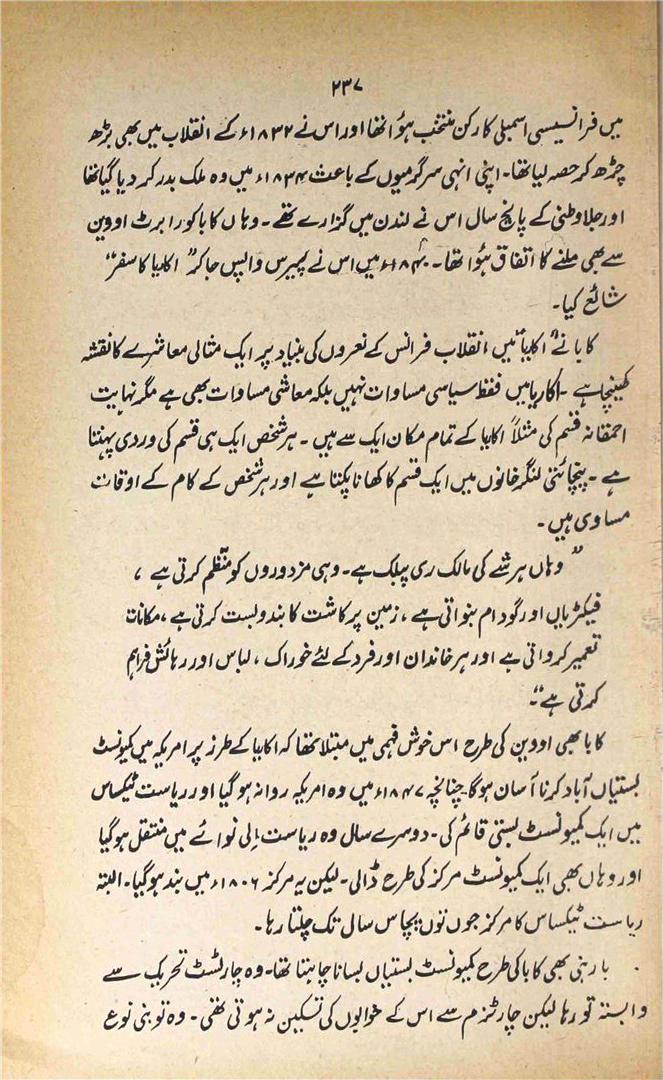 ۲۳۷
میں فرانسیسی اسمبلی کا رکن منتخب ہوُا تھا اور اس نے ۱۸۳۲ء کے انقلاب میں بھی بڑھ
چڑھ کر حصہ لیا تھا۔ اپنی انہی سرگرمیوں کے باعث ۱۸۳۴ء میں وہ ملک بدر کر دیا گیا تھا
اور جلاوطنی کے پانچ سال اس نے لندن میں گزارے تھے۔ وہاں کابا کو رابرٹ اووین
سے بھی ملنے کا اتفاق ہوُا تھا۔ ۱۸۴۰ء میں اس نے پیرس واپس جا کر ”اکاریا کا سفر“
شائع کیا۔
کابا نے ”اکاریا“ میں انقلاب فرانس کے نعروں کی بنیاد پر ایک مثالی معاشرے کا نقشہ
کھینچا ہے۔ اکاریا میں فقط سیاسی مساوات نہیں بلکہ معاشی مساوات بھی ہے مگر نہایت
احمقانہ قسم کی مثلاً اکاریا کے تمام مکان ایک سے ہیں۔ ہر شخص ایک ہی قسم کی وردی پہنتا
ہے۔ پنچائتی لنگر خانوں میں ایک قسم کا کھانا پکتا ہے اور ہر شخص کے کام کے اوقات
مساوی ہیں۔
”وہاں ہر شے کی مالک ری پبلک ہے۔ وہی مزدوروں کو منظّم کرتی ہے،
فیکٹریاں اور گودام بنواتی ہے، زمین پر کاشت کا بندوبست کرتی ہے، مکانات
تعمیر کرواتی ہے اور ہر خاندان اور فرد کے لئے خوراک، لباس اور رہائش فراہم
کرتی ہے“۔
کابا بھی اووین کی طرح اس خوش فہمی میں مبتلا تھا کہ اکاریا کے طرز پر امریکہ میں کمیونسٹ
بستیاں آباد کرنا آسان ہوگا چنانچہ ۱۸۴۷ء میں وہ امریکہ روانہ ہو گیا اور ریاست ٹیکساس
میں ایک کمیونسٹ بستی قائم کی۔ دوسرے سال وہ ریاست اِلی نوائے میں منتقل ہو گیا
اور وہاں بھی ایک کمیونسٹ مرکز کی طرح ڈالی۔ لیکن یہ مرکز ۱۸۰۶ء میں بند ہو گیا۔ البتہ
ریاست ٹیکساس کا مرکز جوں توں پچاس سال تک چلتا رہا۔
بارنبی بھی کابا کی طرح کمیونسٹ بستیاں بسانا چاہتا تھا۔ وہ چارٹسٹ تحریک سے
وابستہ تو رہا لیکن چارٹزم سے اس کے خوابوں کی تسکین نہ ہوتی تھی۔ وہ تو بنی نوع